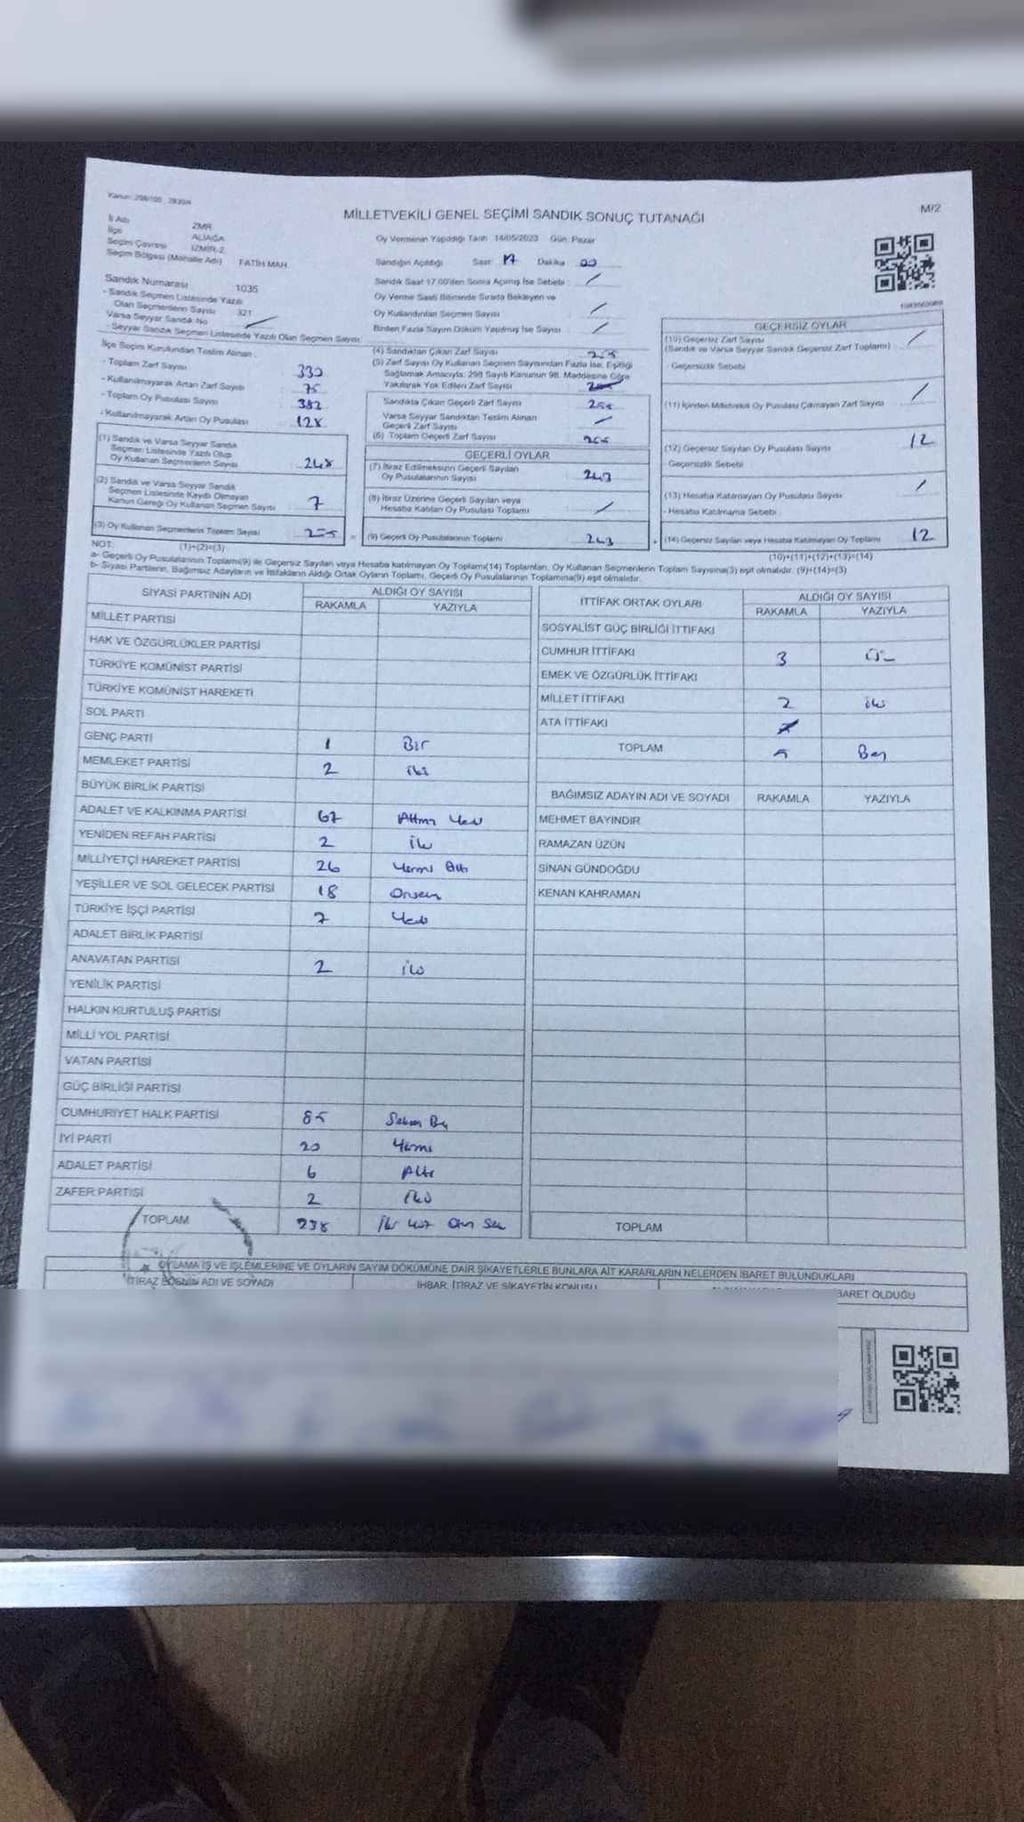 Kanun: 298/105, 2839/4
MİLLETVEKİLİ GENEL SEÇİMİ SANDIK SONUÇ TUTANAĞI
M/2
İl Adı İZMİR
İlçe ALİAĞA
Seçim Çevresi İZMİR-2
Seçim Bölgesi (Mahalle Adı) FATİH MAH.
Sandık Numarası 1035
- Sandık Seçmen Listesinde Yazılı
Olan Seçmenlerin Sayısı 321
Varsa Seyyar Sandık No
- Seyyar Sandık Seçmen Listesinde Yazılı Olan Seçmen Sayısı
İlçe Seçim Kurulundan Teslim Alınan
- Toplam Zarf Sayısı 330
- Kullanılmayarak Artan Zarf Sayısı 75
- Toplam Oy Pusulası Sayısı 382
- Kullanılmayarak Artan Oy Pusulası 128
(1) Sandık ve Varsa Seyyar Sandık
Seçmen Listesinde Yazılı Olup
Oy Kullanan Seçmenlerin Sayısı 248
(2) Sandık ve Varsa Seyyar Sandık
Seçmen Listesinde Kaydı Olmayan
Kanun Gereği Oy Kullanan Seçmen Sayısı 7
(3) Oy Kullanan Seçmenlerin Toplam Sayısı 255
(1)+(2)=(3)
Oy Vermenin Yapıldığı Tarih 14/05/2023 Gün: Pazar
Sandığın Açıldığı Saat 17 Dakika 00
Sandık Saat 17.00'den Sonra Açılmış İse Sebebi : /
Oy Verme Saati Bitiminde Sırada Bekleyen ve
Oy Kullandırılan Seçmen Sayısı /
Birden Fazla Sayım Döküm Yapılmış İse Sayısı /
(4) Sandıktan Çıkan Zarf Sayısı 255
(5) Zarf Sayısı Oy Kullanan Seçmen Sayısından Fazla İse, Eşitliği
Sağlamak Amacıyla; 298 Sayılı Kanunun 98. Maddesine Göre
Yakılarak Yok Edilen Zarf Sayısı
Sandıkta Çıkan Geçerli Zarf Sayısı 255
Varsa Seyyar Sandıktan Teslim Alınan
Geçerli Zarf Sayısı /
(6) Toplam Geçerli Zarf Sayısı 255
GEÇERLİ OYLAR
(7) İtiraz Edilmeksizin Geçerli Sayılan
Oy Pusulalarının Sayısı 243
(8) İtiraz Üzerine Geçerli Sayılan veya
Hesaba Katılan Oy Pusulası Toplamı /
(9) Geçerli Oy Pusulalarının Toplamı 243
GEÇERSİZ OYLAR
(10) Geçersiz Zarf Sayısı
(Sandık ve Varsa Seyyar Sandık Geçersiz Zarf Toplamı) /
- Geçersizlik Sebebi
(11) İçinden Milletvekili Oy Pusulası Çıkmayan Zarf Sayısı /
(12) Geçersiz Sayılan Oy Pusulası Sayısı 12
Geçersizlik Sebebi
(13) Hesaba Katılmayan Oy Pusulası Sayısı /
- Hesaba Katılmama Sebebi :
(14) Geçersiz Sayılan veya Hesaba Katılmayan Oy Toplamı 12
(10)+(11)+(12)+(13)=(14)
NOT:
a- Geçerli Oy Pusulalarının Toplamı(9) ile Geçersiz Sayılan veya Hesaba Katılmayan Oy Toplamı(14) Toplamları, Oy Kullanan Seçmenlerin Toplam Sayısına(3) eşit olmalıdır. (9)+(14)=(3)
b- Siyasi Partilerin, Bağımsız Adayların ve İttifakların Aldığı Ortak Oyların Toplamı, Geçerli Oy Pusulalarının Toplamına(9) eşit olmalıdır.
SİYASİ PARTİNİN ADI ALDIĞI OY SAYISI
RAKAMLA YAZIYLA
MİLLET PARTİSİ
HAK VE ÖZGÜRLÜKLER PARTİSİ
TÜRKİYE KOMÜNİST PARTİSİ
TÜRKİYE KOMÜNİST HAREKETİ
SOL PARTİ
GENÇ PARTİ 1 Bir
MEMLEKET PARTİSİ 2 iki
BÜYÜK BİRLİK PARTİSİ
ADALET VE KALKINMA PARTİSİ 67 Altmış Yedi
YENİDEN REFAH PARTİSİ 2 iki
MİLLİYETÇİ HAREKET PARTİSİ 26 Yirmi Altı
YEŞİLLER VE SOL GELECEK PARTİSİ 18 Onsekiz
TÜRKİYE İŞÇİ PARTİSİ 7 Yedi
ADALET BİRLİK PARTİSİ
ANAVATAN PARTİSİ 2 iki
YENİLİK PARTİSİ
HALKIN KURTULUŞ PARTİSİ
MİLLİ YOL PARTİSİ
VATAN PARTİSİ
GÜÇ BİRLİĞİ PARTİSİ
CUMHURİYET HALK PARTİSİ 85 Seksen Beş
İYİ PARTİ 20 Yirmi
ADALET PARTİSİ 6 Altı
ZAFER PARTİSİ 2 iki
TOPLAM 238 İki Yüz Otuz Sekiz
İTTİFAK ORTAK OYLARI ALDIĞI OY SAYISI
RAKAMLA YAZIYLA
SOSYALİST GÜÇ BİRLİĞİ İTTİFAKI
CUMHUR İTTİFAKI 3 Üç
EMEK VE ÖZGÜRLÜK İTTİFAKI
MİLLET İTTİFAKI 2 iki
ATA İTTİFAKI
TOPLAM 5 Beş
BAĞIMSIZ ADAYIN ADI VE SOYADI RAKAMLA YAZIYLA
MEHMET BAYINDIR
RAMAZAN ÜZÜN
SİNAN GÜNDOĞDU
KENAN KAHRAMAN
TOPLAM
OYLAMA İŞ VE İŞLEMLERİNE VE OYLARIN SAYIM DÖKÜMÜNE DAİR ŞİKAYETLERLE BUNLARA AİT KARARLARIN NELERDEN İBARET BULUNDUKLARI
İTİRAZ EDENİN ADI VE SOYADI İHBAR, İTİRAZ VE ŞİKAYETİN KONUSU BARET OLDUĞU